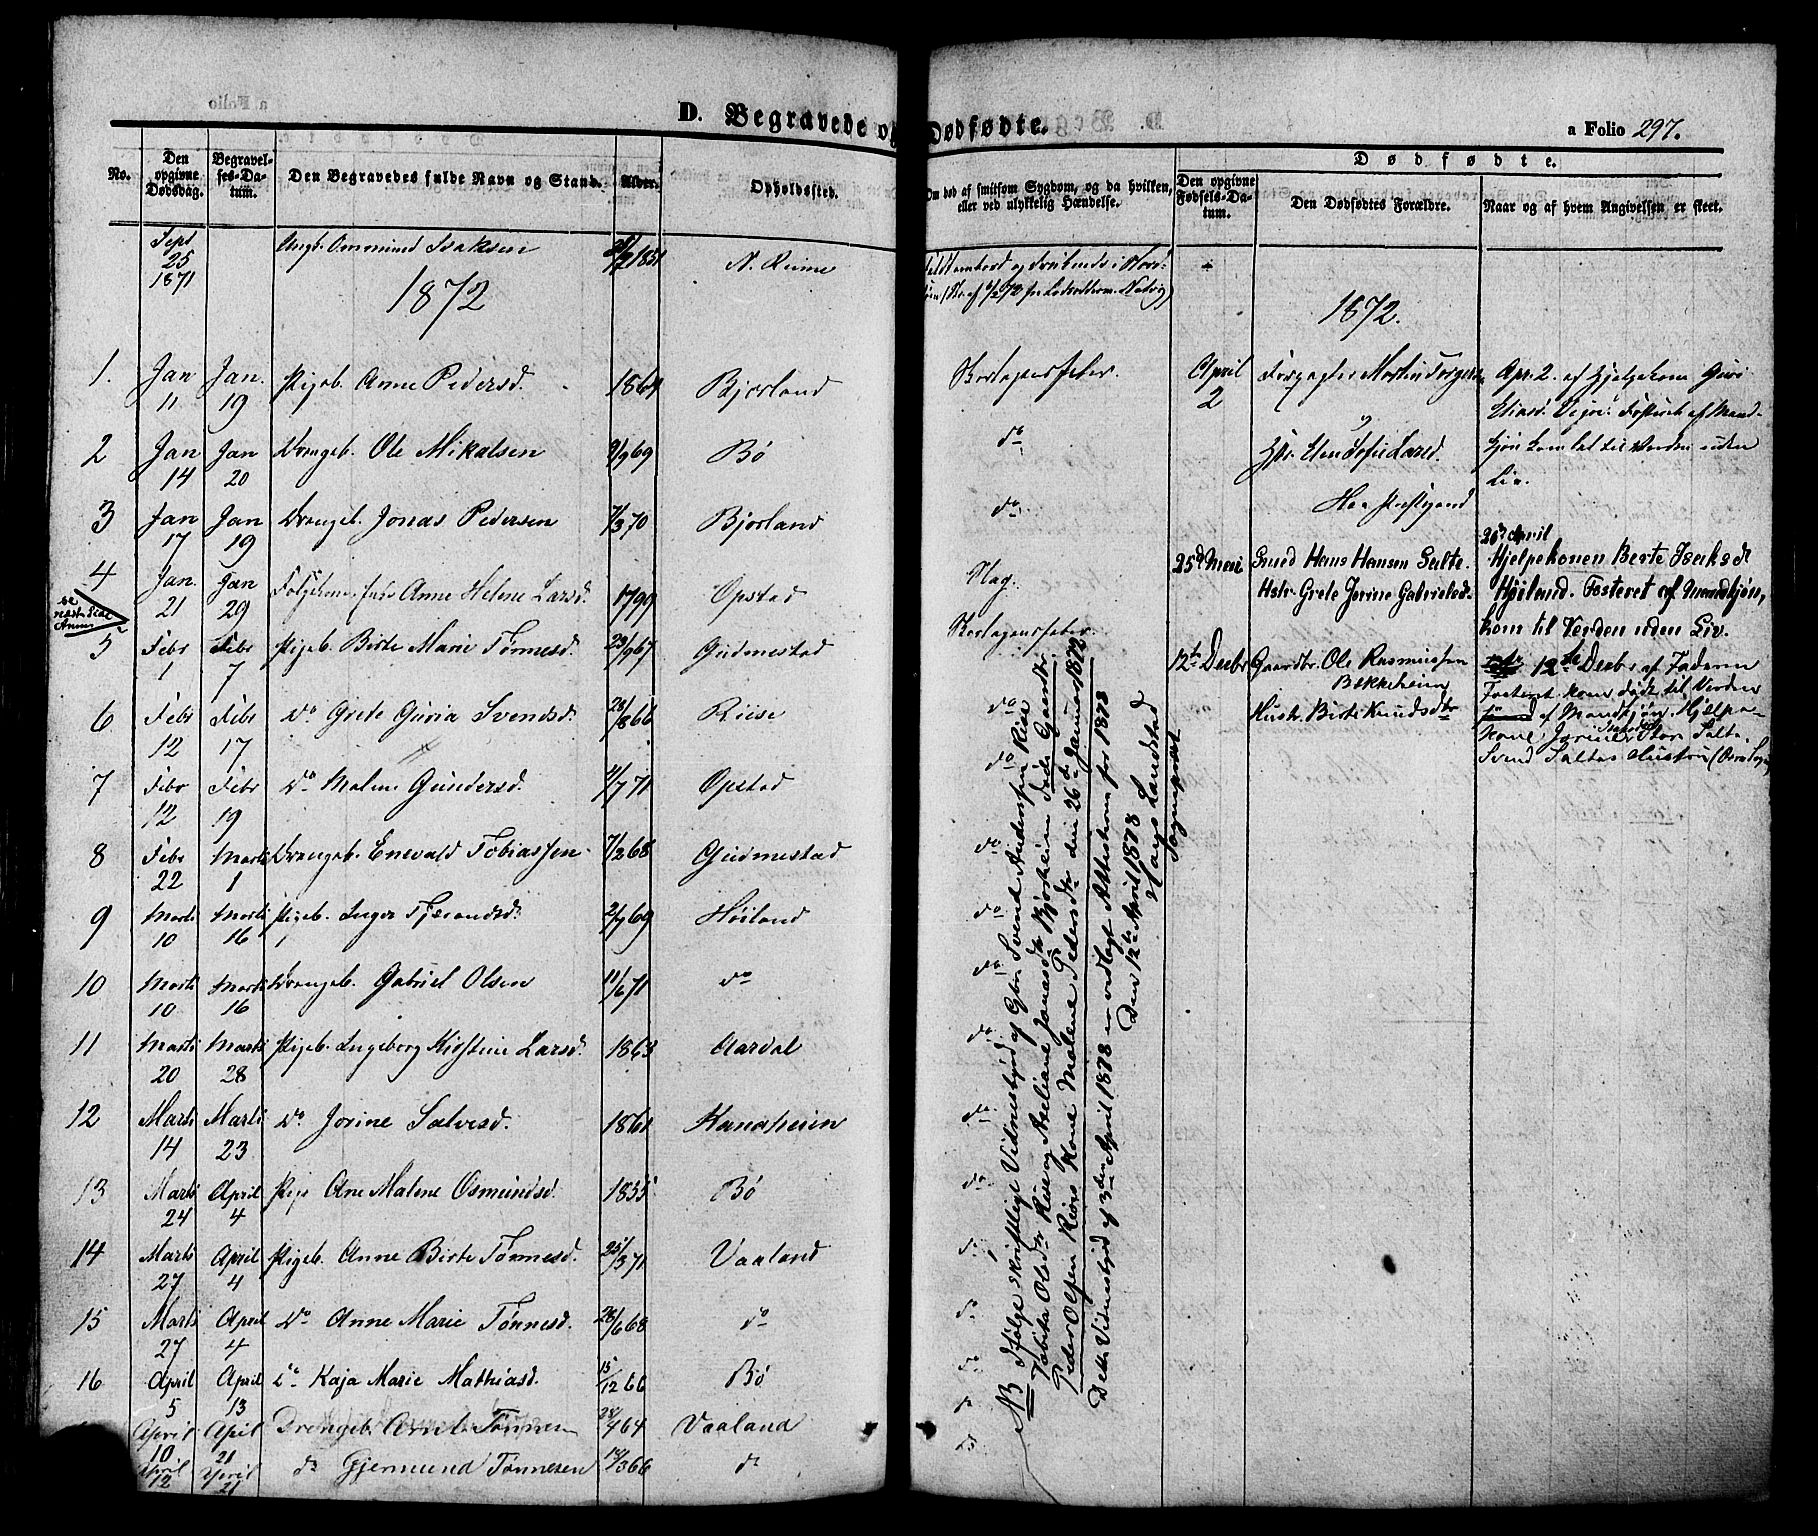 D. Begravede og Dødfødte.
a Folio 297.
No.
Den opgivne Dødsdag.
Begravelses-Datum.
Den Begravedes fulde Navn og Stand.
Alder.
Opholdssted.
Om død af smitsom Sygdom, og da hvilken, eller ved ulykkelig Hændelse.
Dødfødte.
Den opgivne Fødsels-Datum.
Den Dødfødtes Forældre.
Naar og af hvem Angivelsen er skeet.
Sept 25 1871 Ungk. Ommund Isaksen 1851 N. Reime
1872
1. Jan 11 Jan. 19 Pigeb. Anne Pedersd. 1864 Bjorland
2 Jan 14 Jan 20 Drengeb. Ole Mikalsen 9/9 69 Bø do
3 Jan 17 Jan 19 Drengeb. Jonas Pedersen 7/3 70 Bjorland do
4 Jan. 21 Jan 29 Anne Helene Larsd. 1799 Opstad Slag.
se næste Side
5 Febr 1 Febr 7 Pigeb. Birte Marie Tønnesd. 23/9 67 Gudmestad
6 Febr 12 Febr 17 do Grete Guria Svendsd. 28/8 66 Riise do
7 Febr 12 Febr 19 do Malene Gundersd. 4/7 71 Opstad do
8 Febr 22 Marts 1 Drengeb. Enevald Tobiassen 7/2 68 Gudmestad do
9 Marts 10 Marts 16 Pigeb. Inger Tjerandsd. 2/7 69 Høiland do
10 Marts 10 Marts 16 Drengeb. Gabriel Olsen 11/6 71 do do
11 Marts 20 Marts 28 Pigeb. Ingeborg Kirstine Larsd. 1863 Aardal do
12 Marts 14 Marts 23 do Jorine Salvesd. 1861 Handheien do
13 Marts 24 April 4 Pige Ane Malene Osmundsd. 1855 Bø do
14 Marts 27 April 4 Pigeb. Anne Birte Tønnesd. 25/3 71 Vaaland do
15 Marts 27 April 4 do Anne Marie Tønnesd. 28/6 68 do do
16 April 5 April 13 do Kaja Marie Mathiasd. 15/12 66 Bø do
April 10 April 21 Drengeb. Arnt Tønnesen 28/4 64 Vaaland
April 12 April 21 do Gjermund Tønnesen 18/3 66 do
1872.
April 2
Morten
Apr. 2. af Hjelpekone Guri
Eliasd.
kom til Verden uden
Liv.
25de Mai Smed Hans Hansen Salte.
Hstr. Grete Jorine Gabrielsd.
26de April
Hjelpekonen Berte Iseksd
Høiland. Fosteret af Mandkjøn,
kom til Verden uden Liv.
12te Decbr Gaardbr. Ole Rasmussen
Bekkeheien
Hustr. Birte Knudsdtr
12te Decbr af Faderen
Fosteret kom dødt til Verden
af Mandkjøn. Hjelpe-
kone Jorine
Svend Saltes Hustru
NB Ifølge skriftligt Vidnesbyrd af Gbr. Svend Andersen Riise
Tobita Olsdtr Riise og Aseliane Jonasdtr Bjorheim døde Gaardbr.
Peder Olsen Riises Kone Malene Pedersdtr den 26de Januar 1872
Dette Vidnesbyrd af 3den April 1878 er vedlagt Attesterne for 1878
Den 12te April 1878
Mags Landstad
Sogneprest